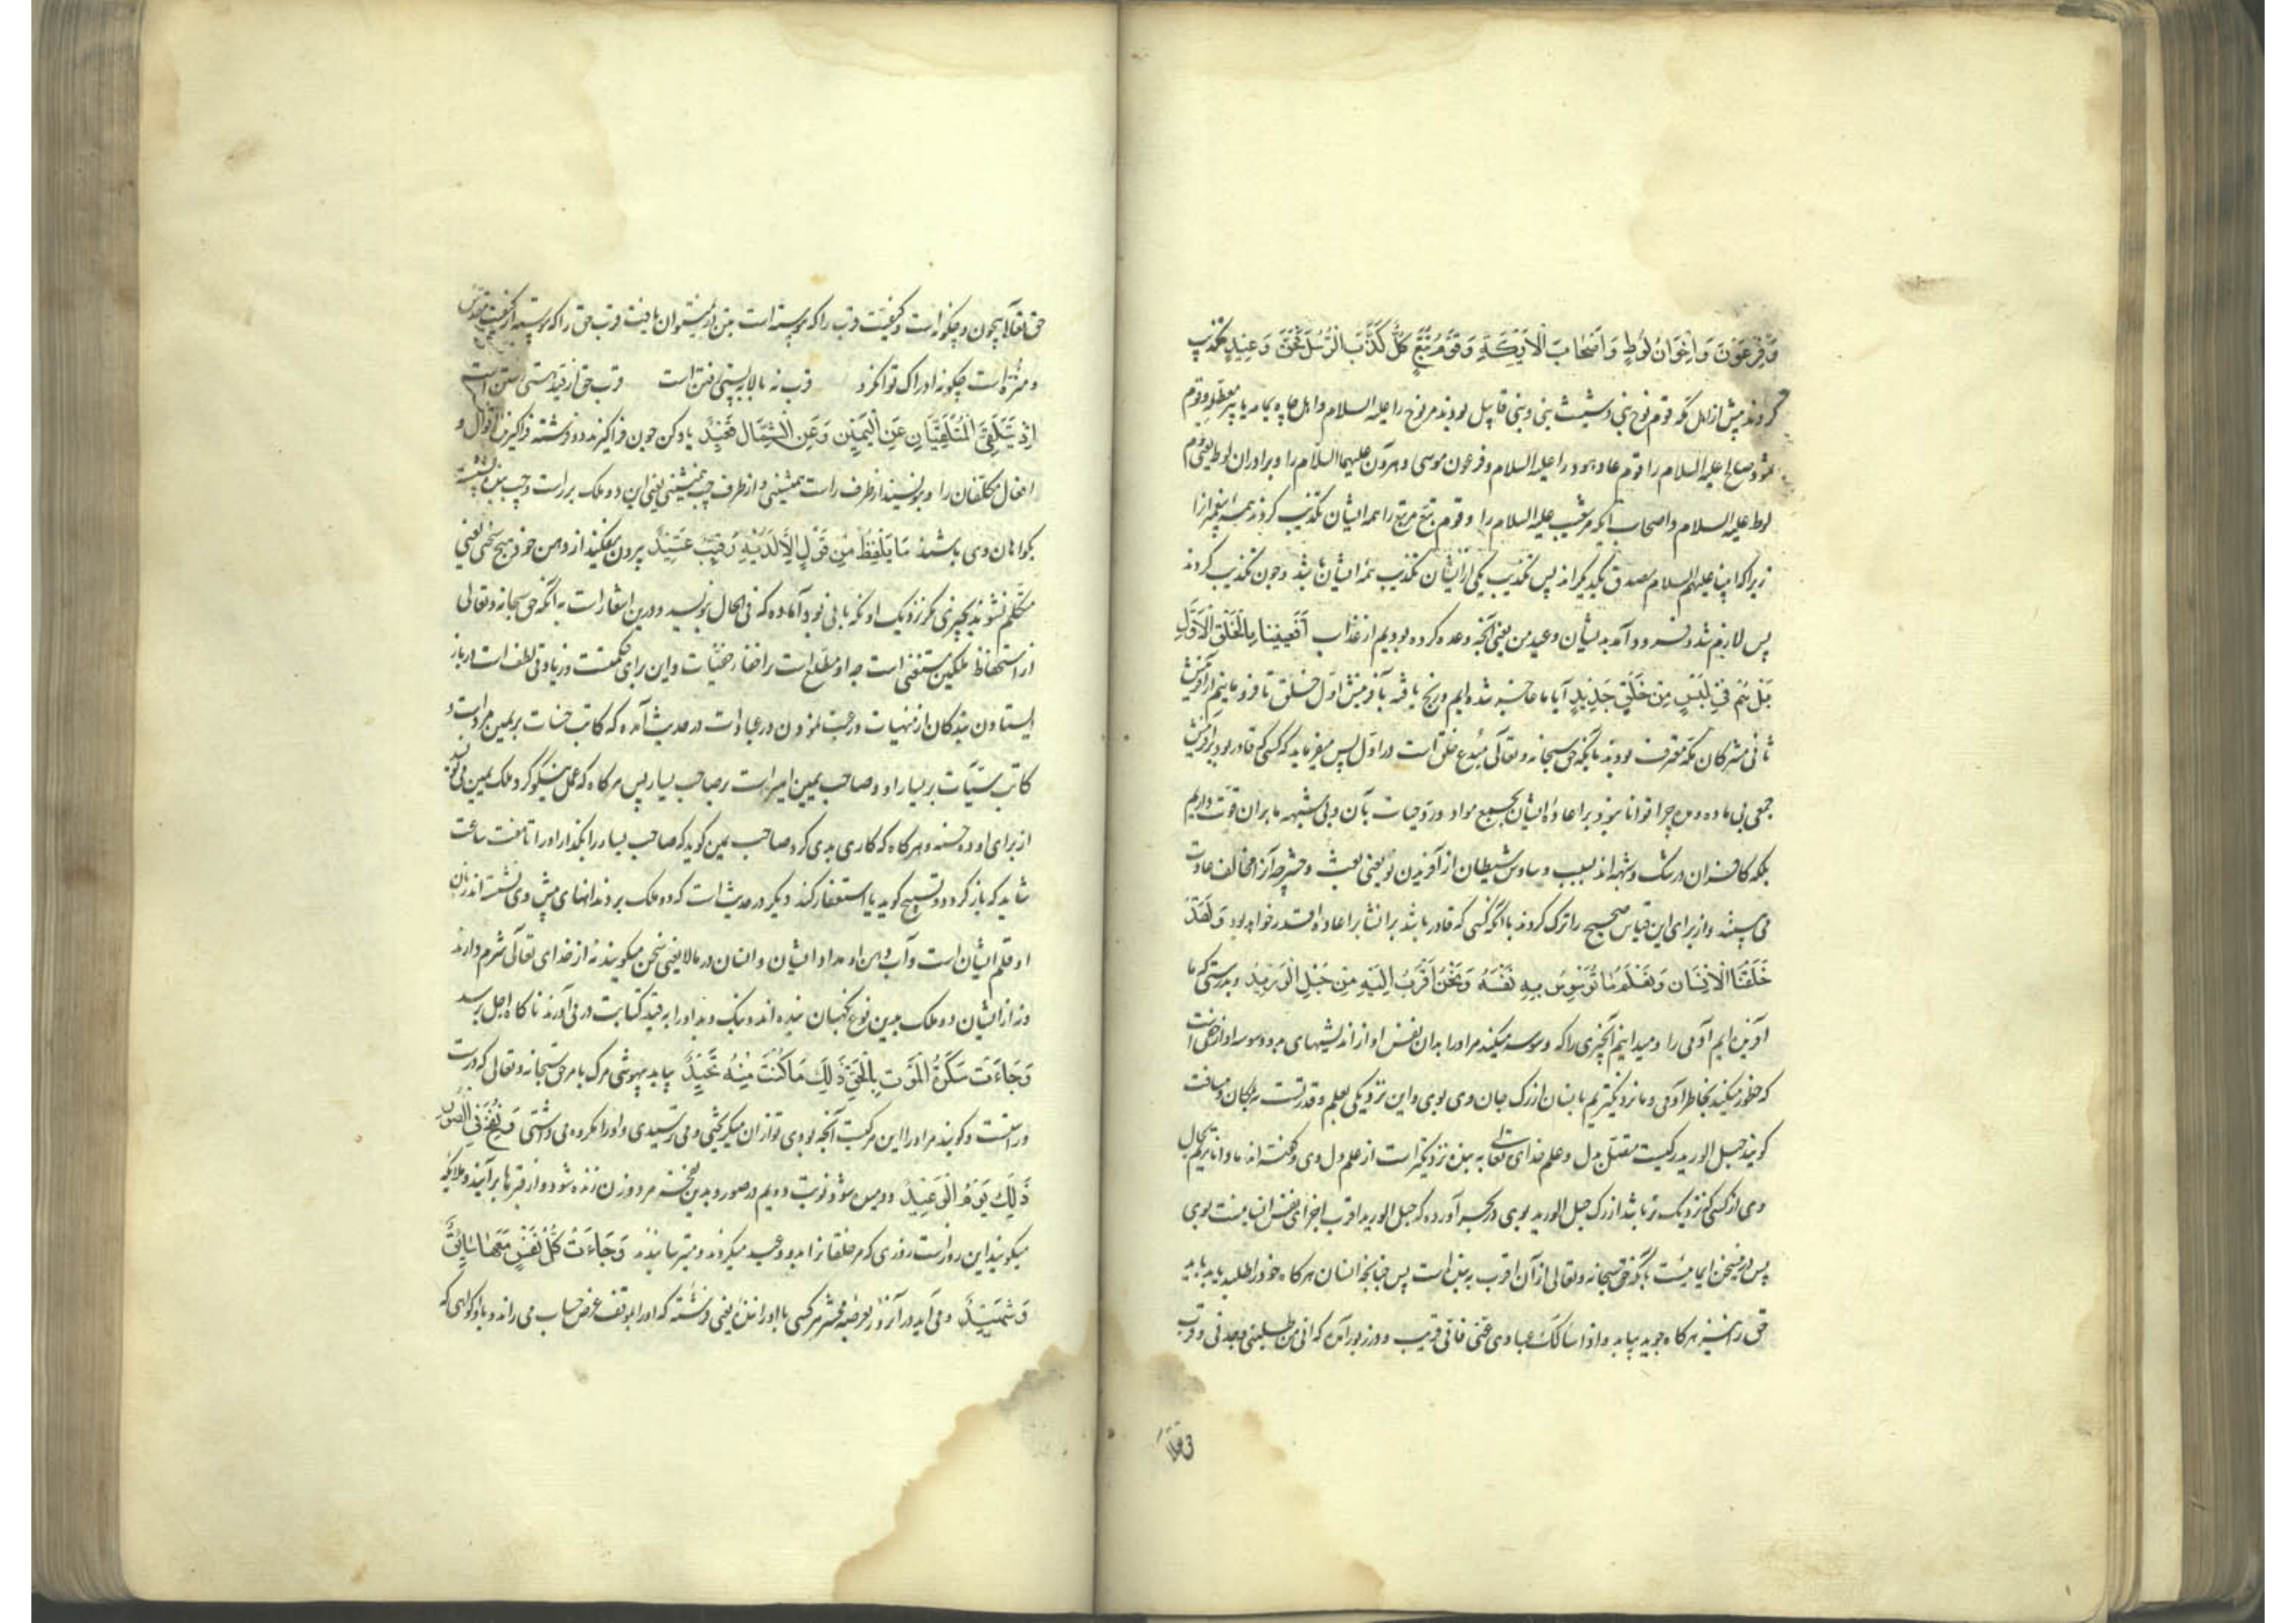 وَفِرْعَوْنَ وَاِخْوَانُ لُوطٍ وَاَصْحَابُ الْاَيْكَةِ وَقَوْمُ تُبَّعٍ كُلٌّ كَذَّبَ الرُّسُلَ فَحَقَّ وَعِيدِ تکذیب
کردند پیش از اهل مکه قوم نوح بنی شیث و بنی قابیل بودند مر نوح را علیه السلام و اهل چاه یمامه یا بیر معطله و قوم
ثمود صالح علیه السلام را و قوم عاد هود را علیه السلام و فرعون موسی و هرون علیهما السلام را و برادران لوط یعنی قوم
لوط علیه السلام و اصحاب ایکه مر شعیب علیه السلام را و قوم تبع مر تبع را همه ایشان تکذیب کردند همه پیغمبرانرا
زیرا که انبیا علیهم السلام مصدق یکدیگراند پس تکذیب یکی از ایشان تکذیب همه ایشان باشد و چون تکذیب کردند
پس لازم شد و فرود آمد بدیشان وعید من یعنی آنچه وعده کرده بودیم از عذاب اَفَعَيِينَا بِالْخَلْقِ الْاَوَّلِ
بَلْ هُمْ فِي لَبْسٍ مِنْ خَلْقٍ جَدِيدٍ آیا ما عاجز شده ایم و رنج یافته بآفرینش اول خلق تا فرو مانیم از آفرینش
ثانی مشرکان مکه معترف بودند بانکه حق سبحانه و تعالی مبدع خلق است در اول پس میفرماید که کسی که قادر بود بر آفرینش
جمعی بی ماده و مدد چرا توانا نبود بر اعاده ایشان بجمع مواد و رد حیات بآن و بی شبهه ما بران قوت داریم
بلکه کافران در شک و شبهه اند بسبب وساوس شیطان از آفریدن نو یعنی بعث و حشر چه آنرا مخالف عادت
می بینند و از برای این قیاس صحیح را ترک کردند با آنکه کسی که قادر باشد بر انشا بر اعاده اقدر خواهد بود وَلَقَدْ
خَلَقْنَا الْاِنْسَانَ وَنَعْلَمُ مَا تُوَسْوِسُ بِهِ نَفْسُهُ وَنَحْنُ اَقْرَبُ اِلَيْهِ مِنْ حَبْلِ الْوَرِيدِ و بدرستی که ما
آفریده ایم آدمی را و میدانیم آنچیزی را که وسوسه میکند مر اورا بدان نفس او از اندیشهای بد و وسوسه آواز خفی است
که خطور میکند بخاطر آدمی و ما نزدیکتریم بانسان از رک جان وی بوی و این نزدیکی بعلم و قدرتست نه بمکان و مسافت
گویند حبل الورید رکیست متصل بدل و علم خدای تعالی به بنده نزدیکتر است از علم دل وی و گفته اند ما داناتریم بحال
وی از کسی که نزدیک تر باشد از رک حبل الورید بوی در بحر آورده که حبل الورید اقرب اجزای نفس انسانیست بوی
پس درین سخن ایمائیست بانکه حق سبحانه و تعالی از آن اقرب به بنده است پس چنانچه انسان هرکاه خود را طلبد یابد باید
حق را نیز هرکاه جوید بیابد و اذا سالک عبادی عنی فانی قریب و در زبور آمده که انی من طلبنی وجدنی و قرب
حق تعالی
حق تعالی بیچون و چگونه است و کیفیت قرب را که پیوسته است بتن در نمیتوان یافت قرب حق را که پیوسته از کیفیت مقدس
و منزه است چگونه ادراک توان کرد قرب نه بالا به پستی رفتن است قرب حق از قید هستی رستن است
اِذْ يَتَلَقَّى الْمُتَلَقِّيَانِ عَنِ الْيَمِينِ وَعَنِ الشِّمَالِ قَعِيدٌ یاد کن چون فرا گیرند دو فرشته فرا گیرنده اقوال و
افعال مکلفان را و بنویسند از طرف راست همنشینی و از طرف چپ همنشینی یعنی این دو ملک بر راست و چپ بنده نشسته
گواهان وی باشند مَا يَلْفِظُ مِنْ قَوْلٍ اِلَّا لَدَيْهِ رَقِيبٌ عَتِيدٌ بیرون نیفکند از دهن خود هیچ سخنی یعنی
متکلم نشوند بچیزی مگر نزدیک او نگهبانی بود آماده که فی الحال بنویسد و درین اشعار است به آنکه حق سبحانه و تعالی
از استحفاظ ملکین مستغنی است چه او مطلع است بر اخفاء خفیات و این برای حکمتست و زیادتی لطف است در باز
ایستادن بندکان از منهیات و رغبت نمودن در عبادات در حدیث آمده که کاتب حسنات بر یمین مرد است و
کاتب سیئات بر یسار او و صاحب یمین امیر است بر صاحب یسار پس هرکاه که عمل نیکو کرد ملک یمین می نویسد
از برای او ده حسنه و هرکاه که کاری بدی کرد صاحب یمین کوید که صاحب یسار را بگذار اورا تا هفت ساعت
شاید که باز کردد و تسبیح کوید یا استغفار کند دیگر در حدیث است که دو ملک بر دندانهای پیش وی نشسته اند زبان
او قلم ایشان است و آب دهن او مداد ایشان و انسان در مالا یعنی سخن میکویند نه از خدای تعالی شرم دارند
و نه از ایشان دو ملک بدین نوع نگهبان بنده اند و نیک و بد اورا به قید کتابت در می آورند تا کاه اجل برسد
وَجَاءَتْ سَكْرَةُ الْمَوْتِ بِالْحَقِّ ذَلِكَ مَا كُنْتَ مِنْهُ تَحِيدُ بیاید بیهوشی مرک بامر حق سبحانه و تعالی که درست
و راست و کویند مر اورا این مرکیست آنچه بودی تو از ان میکریختی و می ترسیدی و اورا مکروه می داشتی وَنُفِخَ فِي الصُّورِ
ذَلِكَ يَوْمُ الْوَعِيدِ و دمیده شود نوبت دویم در صور و بدین نفخه مردوزن زنده شود و از قبرها برآیند و ملایکه
میکویند این روز است روزی که مر خلقانرا بدو وعید میکردند و میترسانیدند وَجَاءَتْ كُلُّ نَفْسٍ مَعَهَا سَائِقٌ
وَشَهِيدٌ و می آید در آنروز بعرصه محشر هر کسی با او راننده یعنی فرشته که اورا بموقف عرض حساب می راند و با او گواهی که